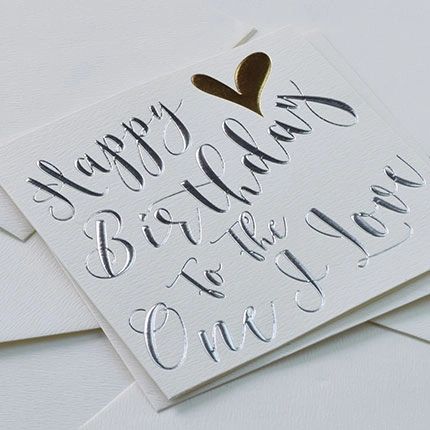 Happy
Birthday
To the
One I Love